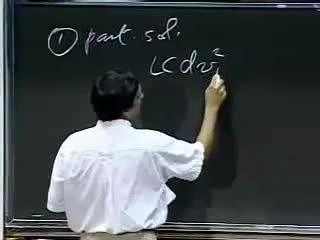 ① part. sol.
LC dv²